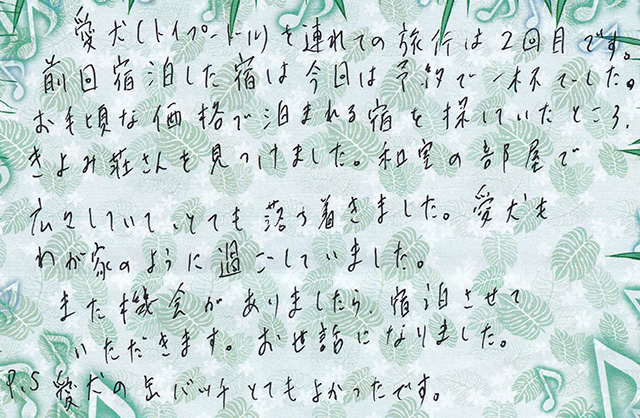 愛犬(トイプードル)を連れての旅行は2回目です。
前回宿泊した宿は今回は予約で一杯でした。
お手頃な価格で泊まれる宿を探していたところ、
きよみ荘さんを見つけました。和室の部屋で
広々していて、とても落ち着きました。愛犬も
わが家のように過ごしていました。
また機会がありましたら、宿泊させて
いただきます。お世話になりました。
P.S 愛犬の缶バッチとてもよかったです。